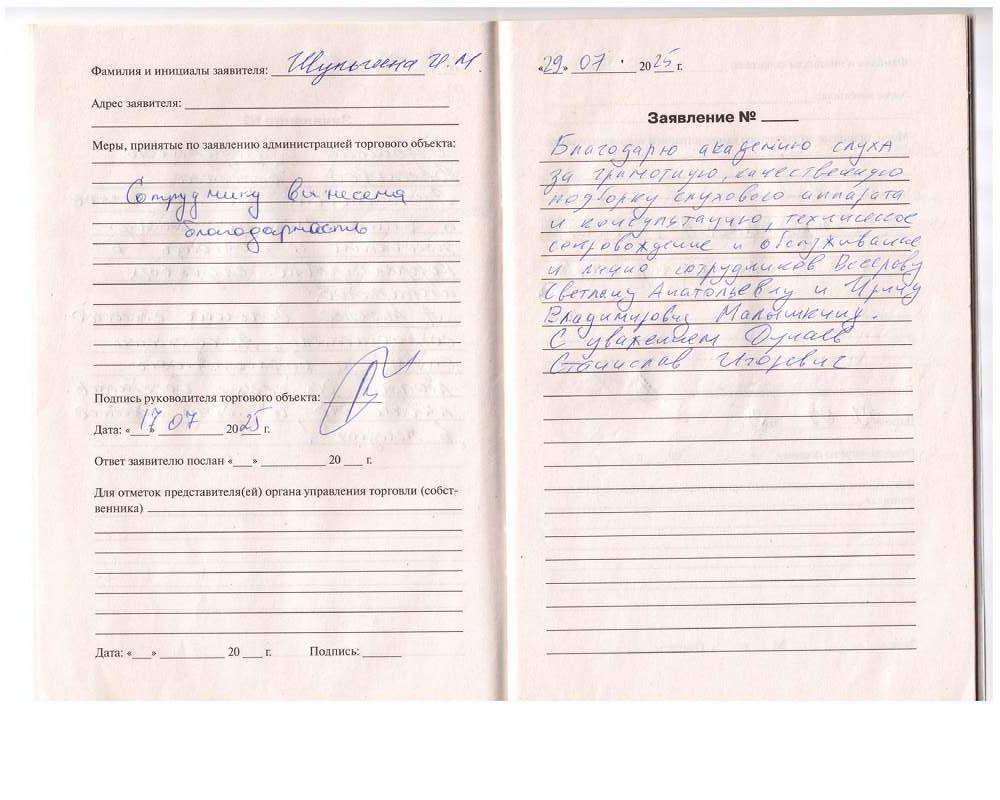 Фамилия и инициалы заявителя: Шульгина И.М.
Адрес заявителя:
Меры, принятые по заявлению администрацией торгового объекта:
Сотруднику вынесена
благодарность
Подпись руководителя торгового объекта:
Дата: «17» 07 2025 г.
Ответ заявителю послан «___» ______ 20 ___ г.
Для отметок представителя(ей) органа управления торговли (собст-
венника)
Дата: «___» ______ 20 ___ г. Подпись: ______
«29» 07. 2025 г.
Заявление № ____
Благодарю академию слуха
за грамотную, качественную
подборку слухового аппарата
и консультацию, техническое
сопровождение и обслуживание
и лично сотрудников
Светлану Анатольевну и Ирину
Владимировну Малышкину.
С уважением Дунаев
Станислав Игоревич